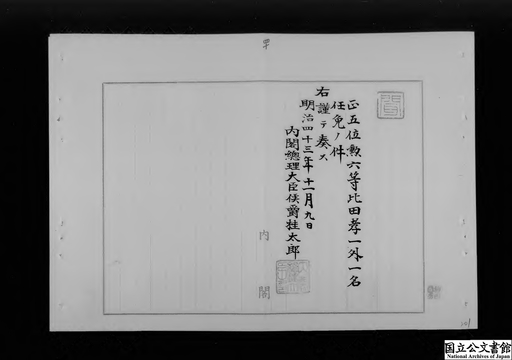 正五位勲六等比田孝一外一名
任免ノ件
右謹テ奏ス
明治四十三年十一月九日
内閣總理大臣侯爵桂太郎
内閣
国立公文書館
National Archives of Japan